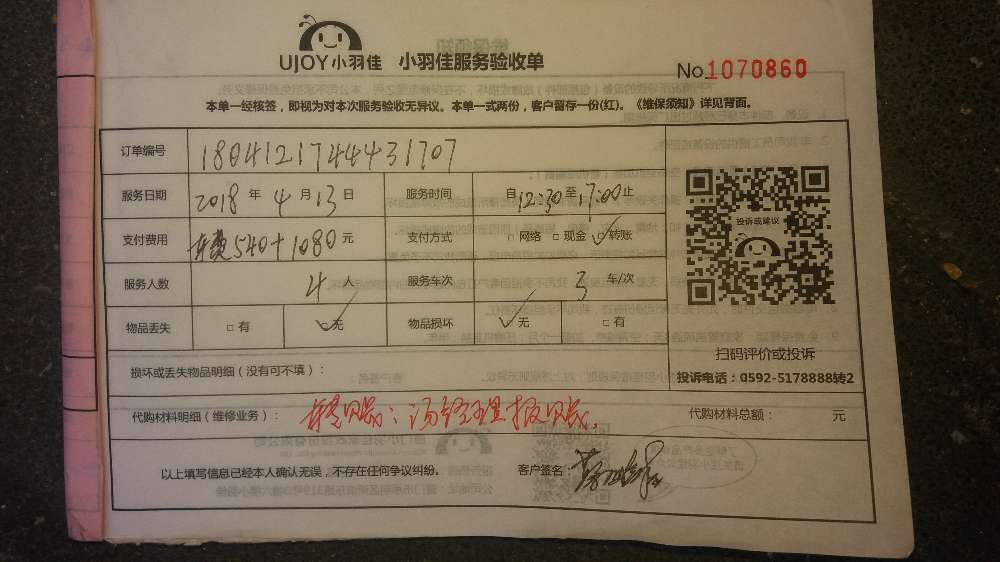 UJOY小羽佳 小羽佳服务验收单
No.1070860
本单一经核签，即视为对本次服务验收无异议。本单一式两份，客户留存一份(红)。《维保须知》详见背面。
订单编号 180412174443 1707
服务日期 2018 年 4 月 13 日 服务时间 自 12:30 至 17:00 止
支付费用 车费540+1080 元 支付方式 □ 网络 □ 现金 ☑ 转账
投诉或建议
服务人数 4 人 服务车次 3 车/次
物品丢失 □ 有 ☑ 无 物品损坏 ☑ 无 □ 有
扫码评价或投诉
损坏或丢失物品明细（没有可不填）：
投诉电话：0592-5178888转2
代购材料明细（维修业务）： 转账：汤经理报账。 代购材料总额： 元
以上填写信息已经本人确认无误，不存在任何争议纠纷。 客户签名：